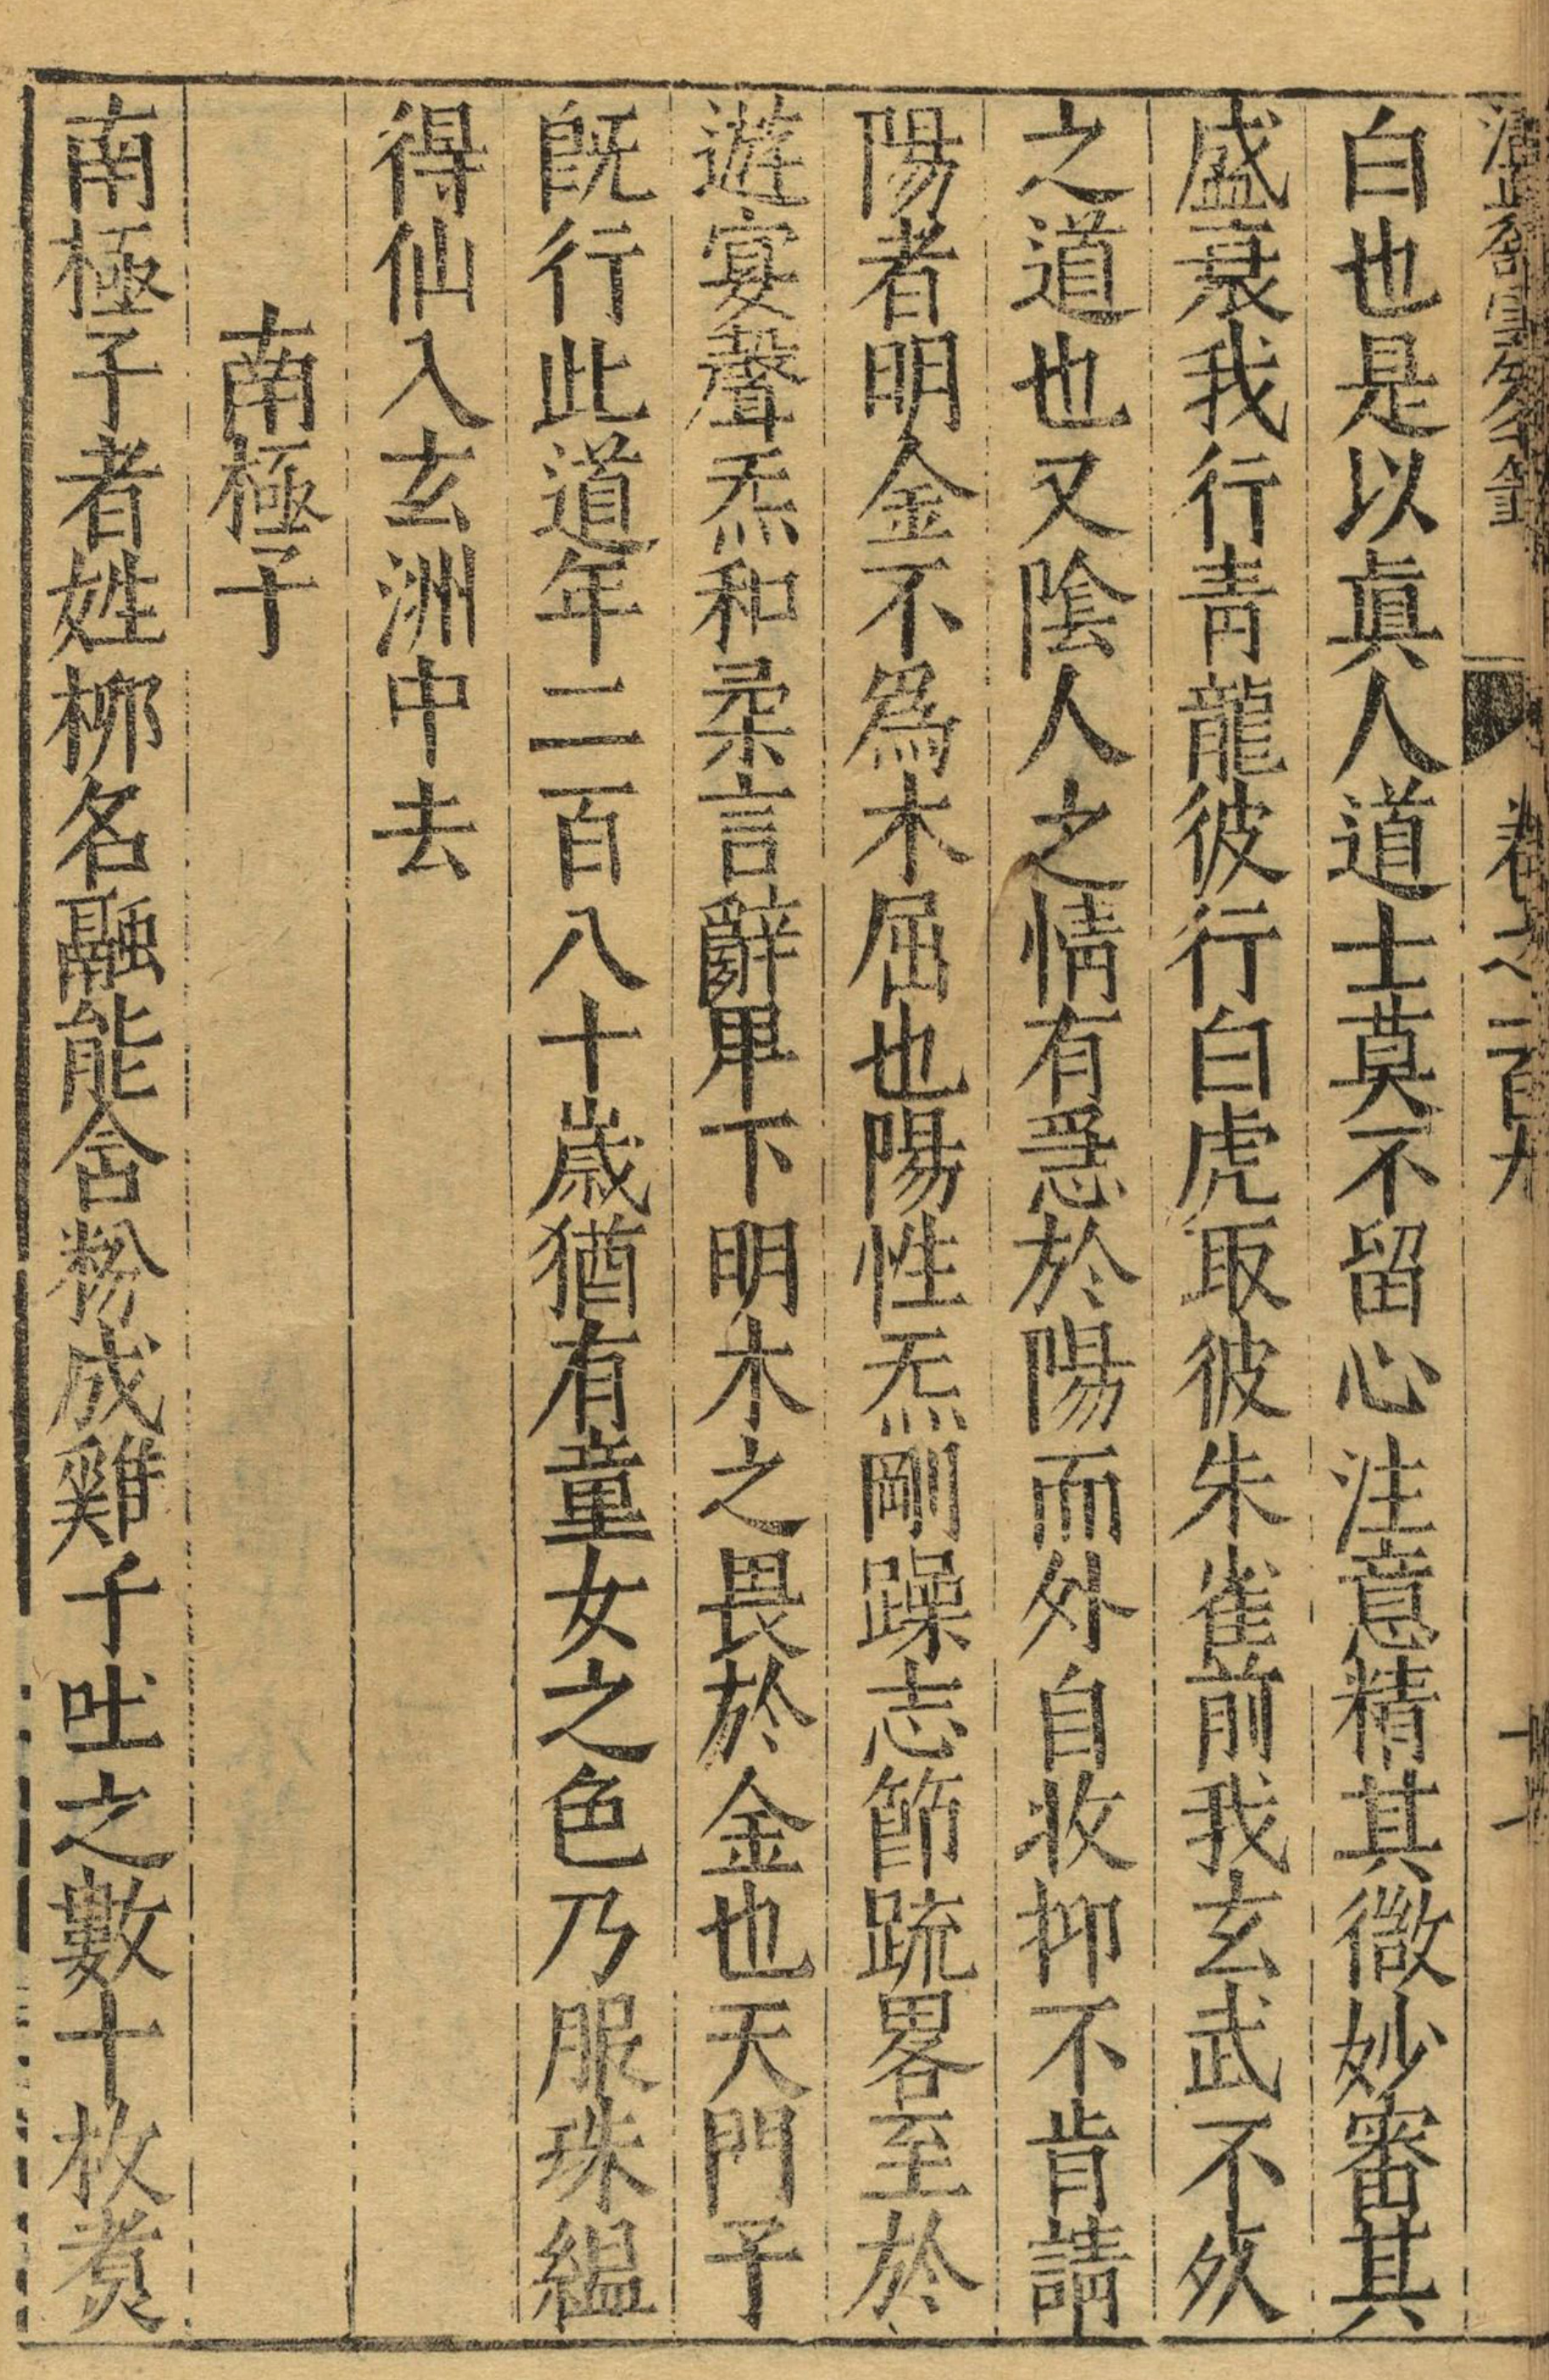 卷之一百九
白也是以眞人道士莫不留心注意精其微妙審其
盛衰我行靑龍彼行白虎取彼朱雀前我玄武不㱙
之道也又陰人之情有急於陽而外自收抑不肯請
陽者明金不爲木屈也陽性炁剛躁志節䟽畧至於
遊宴聲炁和柔言辭卑下明木之畏於金也天門子
旣行此道年二百八十歲猶有童女之色乃服珠緼
得仙入玄洲中去
南極子
南極子者姓柳名融能含粉成雞子吐之數十枚煮